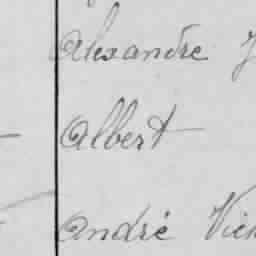 Alexandre
Albert
André